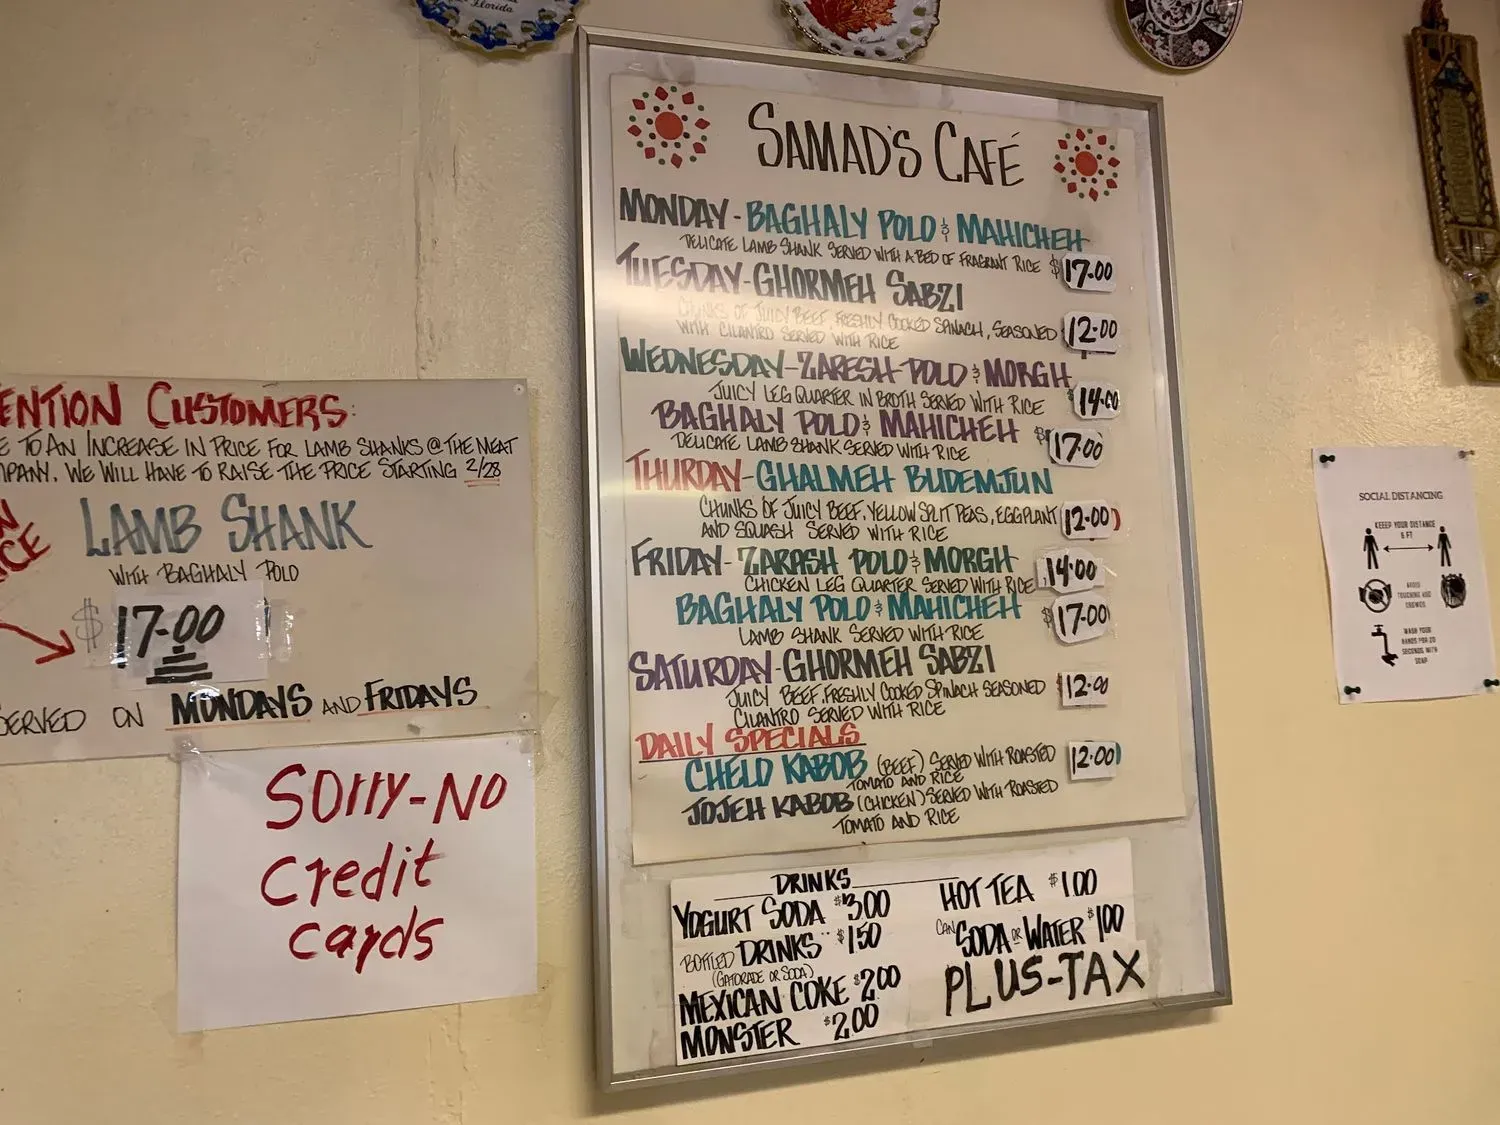 Florida
Canada
SAMAD'S CAFÉ
MONDAY - BAGHALY POLO & MAHICHEH
DELICATE LAMB SHANK SERVED WITH A BED OF FRAGRANT RICE $17.00
TUESDAY - GHORMEH SABZI
CHUNKS OF JUICY BEEF, FRESHLY COOKED SPINACH, SEASONED
WITH CILANTRO SERVED WITH RICE 12.00
WEDNESDAY - ZARESH POLO & MORGH
JUICY LEG QUARTER IN BROTH SERVED WITH RICE 14.00
BAGHALY POLO & MAHICHEH
DELICATE LAMB SHANK SERVED WITH RICE $17.00
THURDAY - GHALMEH BUDEMJUN
CHUNKS OF JUICY BEEF, YELLOW SPLIT PEAS, EGGPLANT
AND SQUASH SERVED WITH RICE 12.00
FRIDAY - ZARASH POLO & MORGH
CHICKEN LEG QUARTER SERVED WITH RICE 14.00
BAGHALY POLO & MAHICHEH
LAMB SHANK SERVED WITH RICE $17.00
SATURDAY - GHORMEH SABZI
JUICY BEEF, FRESHLY COOKED SPINACH SEASONED
CILANTRO SERVED WITH RICE $12.00
DAILY SPECIALS
CHELO KABOB (BEEF) SERVED WITH ROASTED
TOMATO AND RICE 12.00
JOJEH KABOB (CHICKEN) SERVED WITH ROASTED
TOMATO AND RICE
DRINKS
YOGURT SODA $3.00
BOTTLED DRINKS $1.50
(GATORADE OR SODA)
MEXICAN COKE $2.00
MONSTER $2.00
HOT TEA $1.00
CAN SODA OR WATER $1.00
PLUS-TAX
ENTION CUSTOMERS:
E TO AN INCREASE IN PRICE FOR LAMB SHANKS @ THE MEAT
MPANY. WE WILL HAVE TO RAISE THE PRICE STARTING 2/28
LAMB SHANK
WITH BAGHALY POLO
$17.00
SERVED ON MONDAYS AND FRIDAYS
SORRY-NO
credit
cards
SOCIAL DISTANCING
KEEEP YOUR DISTANCE
6 FT
AVOID
TOUCHING AND
CROWDS
WASH YOUR
HANDS FOR 20
SECONDS WITH
SOAP